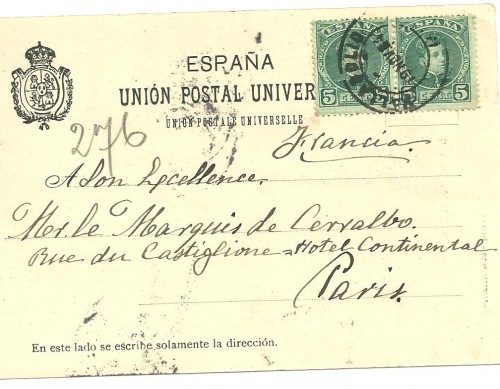 ESPAÑA
UNIÓN POSTAL UNIVER
UNION POSTALE UNIVERSELLE
ESPAÑA
ESPAÑA
5 5
5 5
276
Francia.
A Son Excellence.
Mr. le Marquis de Cerralbo.
Rue du Castiglione = Hotel Continental
Paris.
En este lado se escribe solamente la dirección.